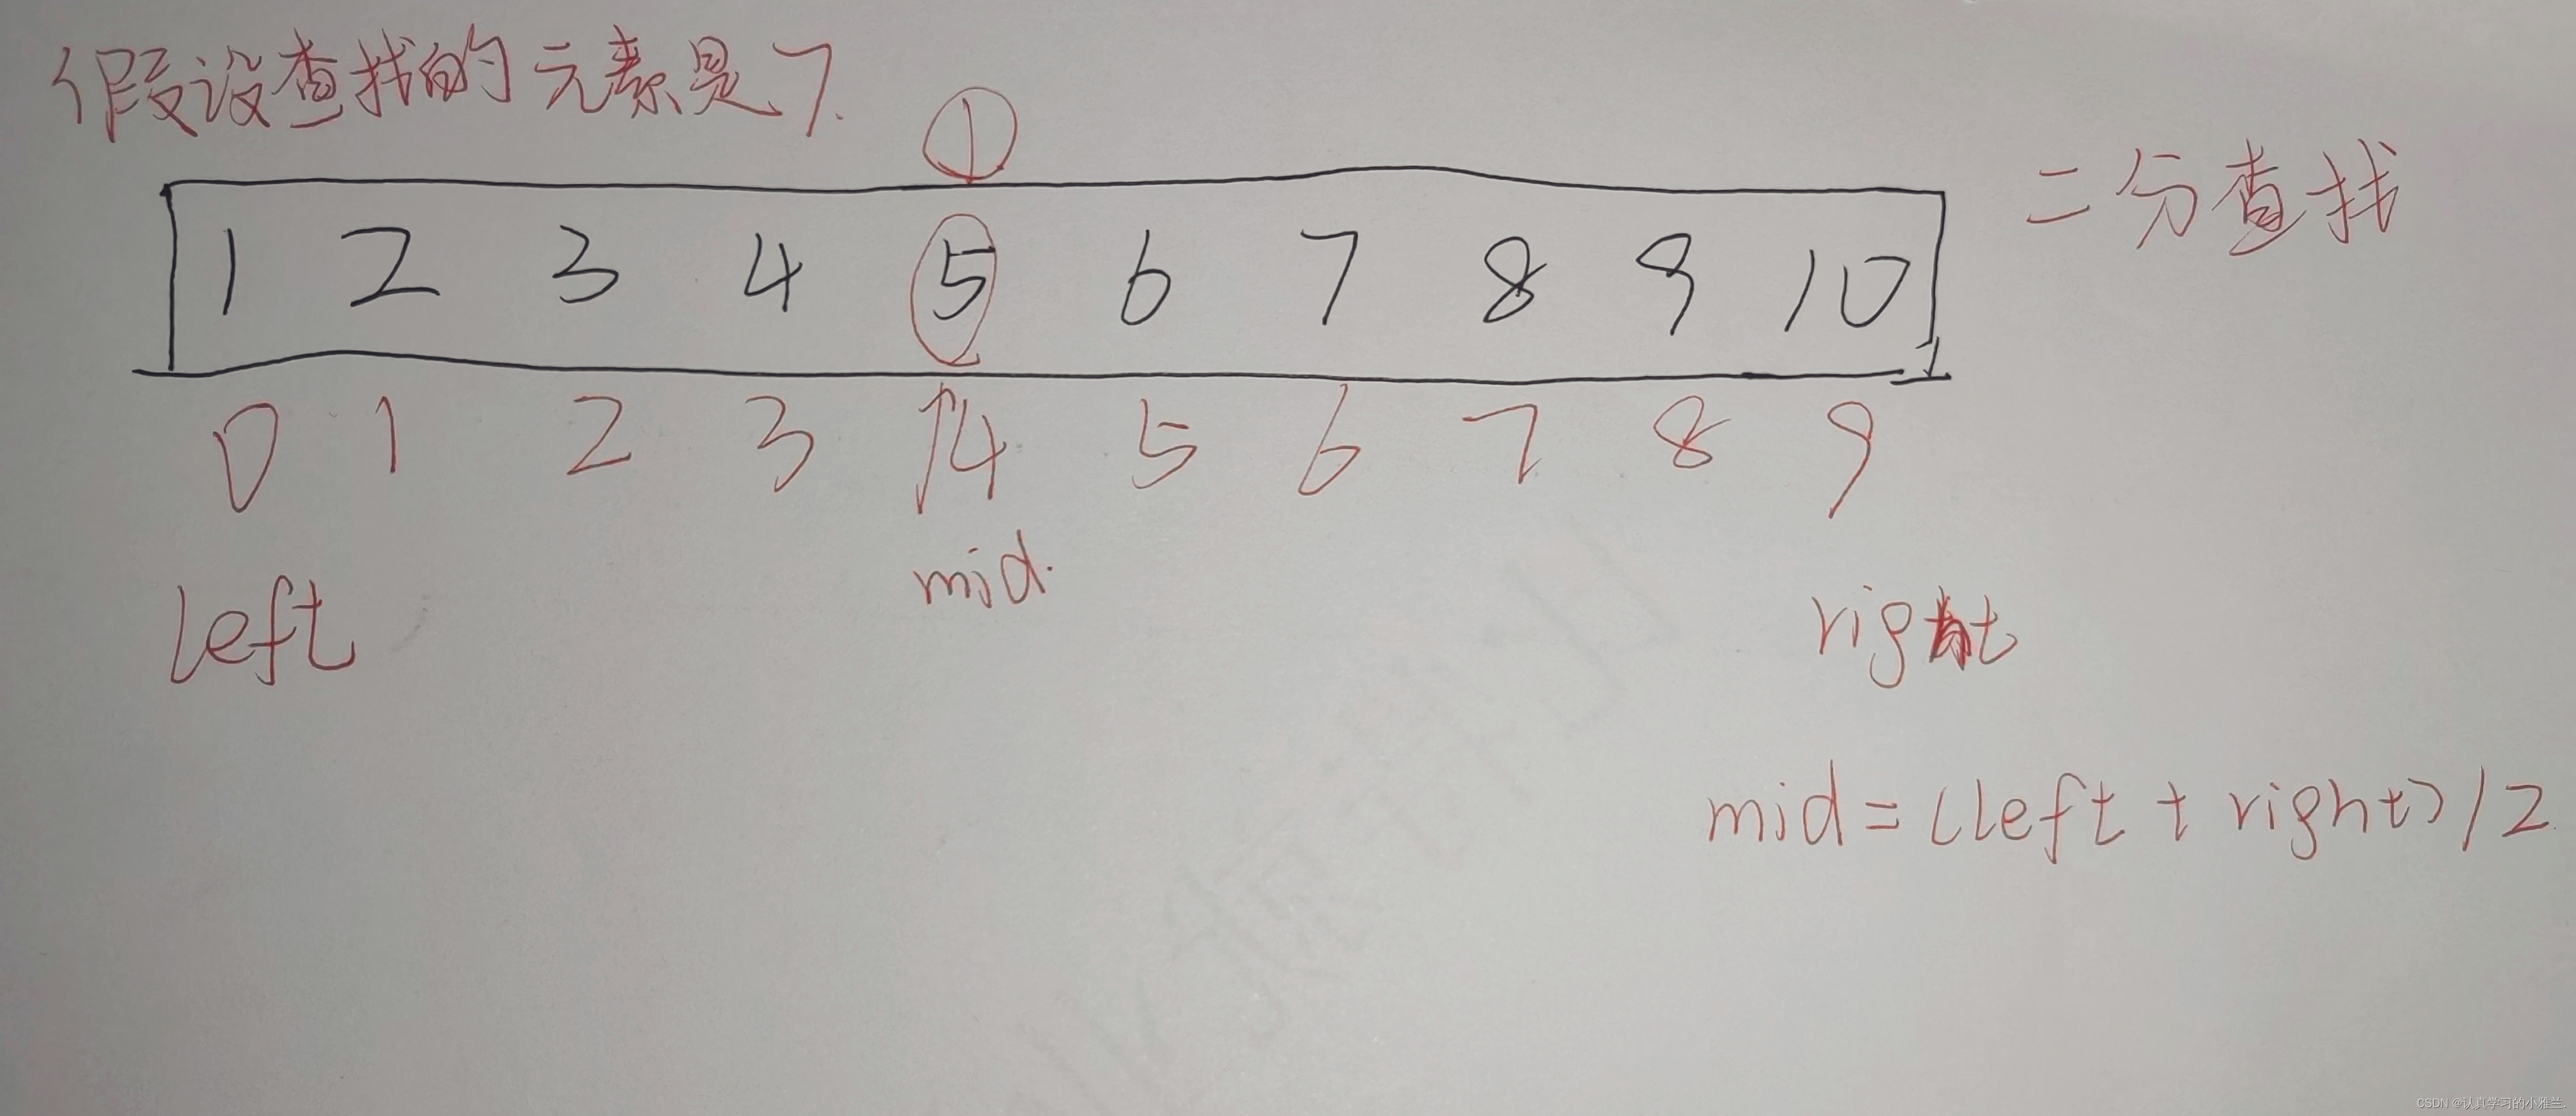 假设查找的元素是7.
①
二分查找
1 2 3 4 5 6 7 8 9 10
0 1 2 3 4 5 6 7 8 9
mid.
left right
mid=(left + right)/2
CSDN @认真学习的小雅兰.